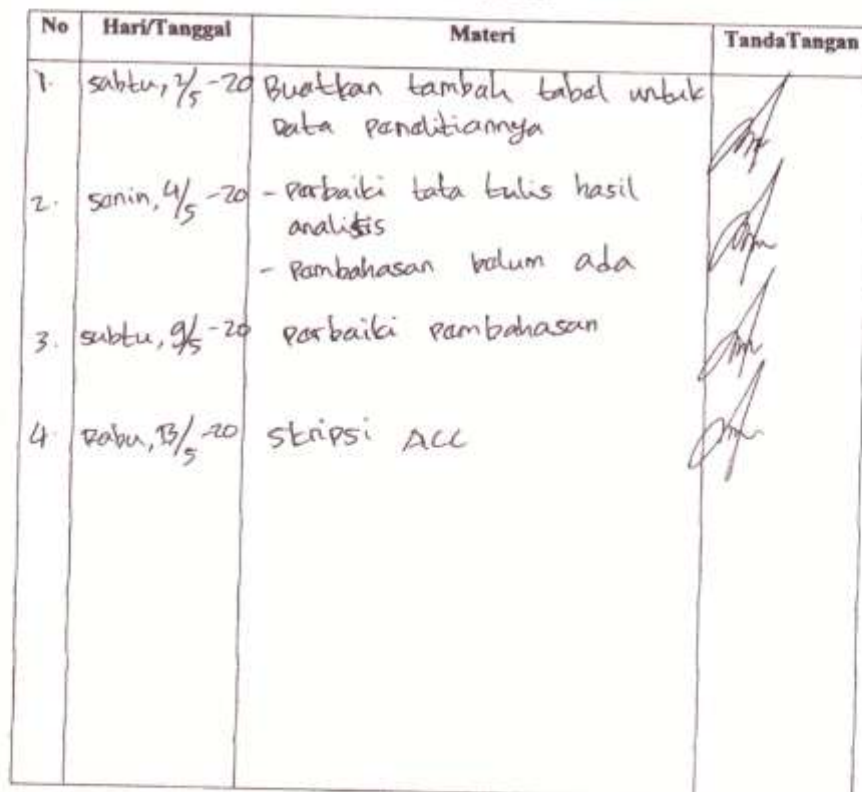 No Hari/Tanggal Materi TandaTangan
1. sabtu, 2/5-20 Buatkan tambah tabel untuk
Data penelitiannya
2. senin, 4/5-20 - perbaiki tata tulis hasil
analisis
- Pembahasan belum ada
3. sabtu, 9/5-20 perbaiki pembahasan
4. Rabu, 13/5-20 skripsi ACC